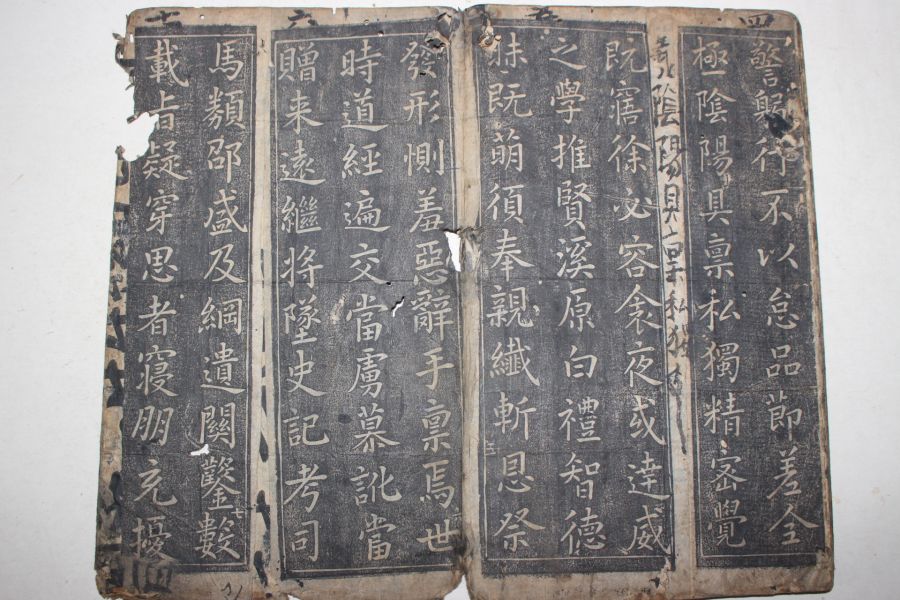 四
警躬行不以怠品節差全
極陰陽具禀私獨精密覺
陰陽具禀私獨
五
既寤徐必容念夜或達威
之學推賢溪原白禮智德
昧既萌須奉親纖斬恩祭
六
發形惻羞惡辭手禀焉世
時道經遍交當虜慕訛當
贈来遠繼將墜史記考司
七
馬類邵盛及綱遺闕鑿數
載旨疑穿思者寢朋充擾